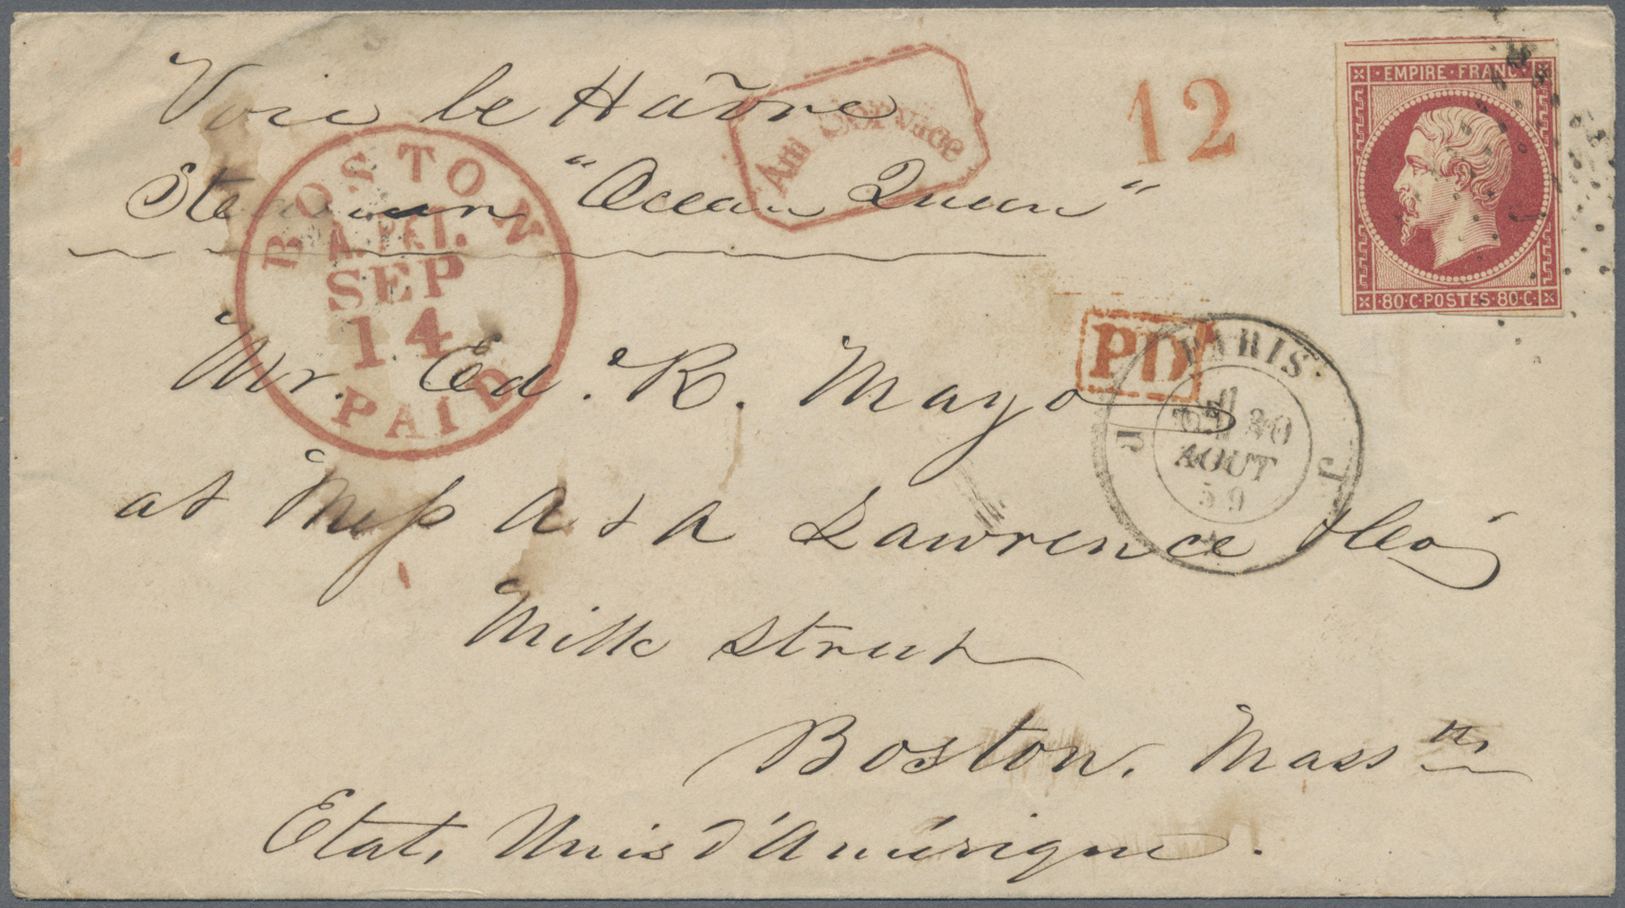 Voie le Havre
Steamer "Ocean Queen"
Am Service
12
EMPIRE · FRANC ·
· 80 · C · POSTES · 80 · C ·
BOSTON
Am. Pkt.
SEP
14
PAID
PD
PARIS
AOUT
59
J J
Mr. Ed. R. Mayo
at Mess A & A Lawrence & Co
Milk Street
Boston. Mass
Etats Unis d'Amérique.